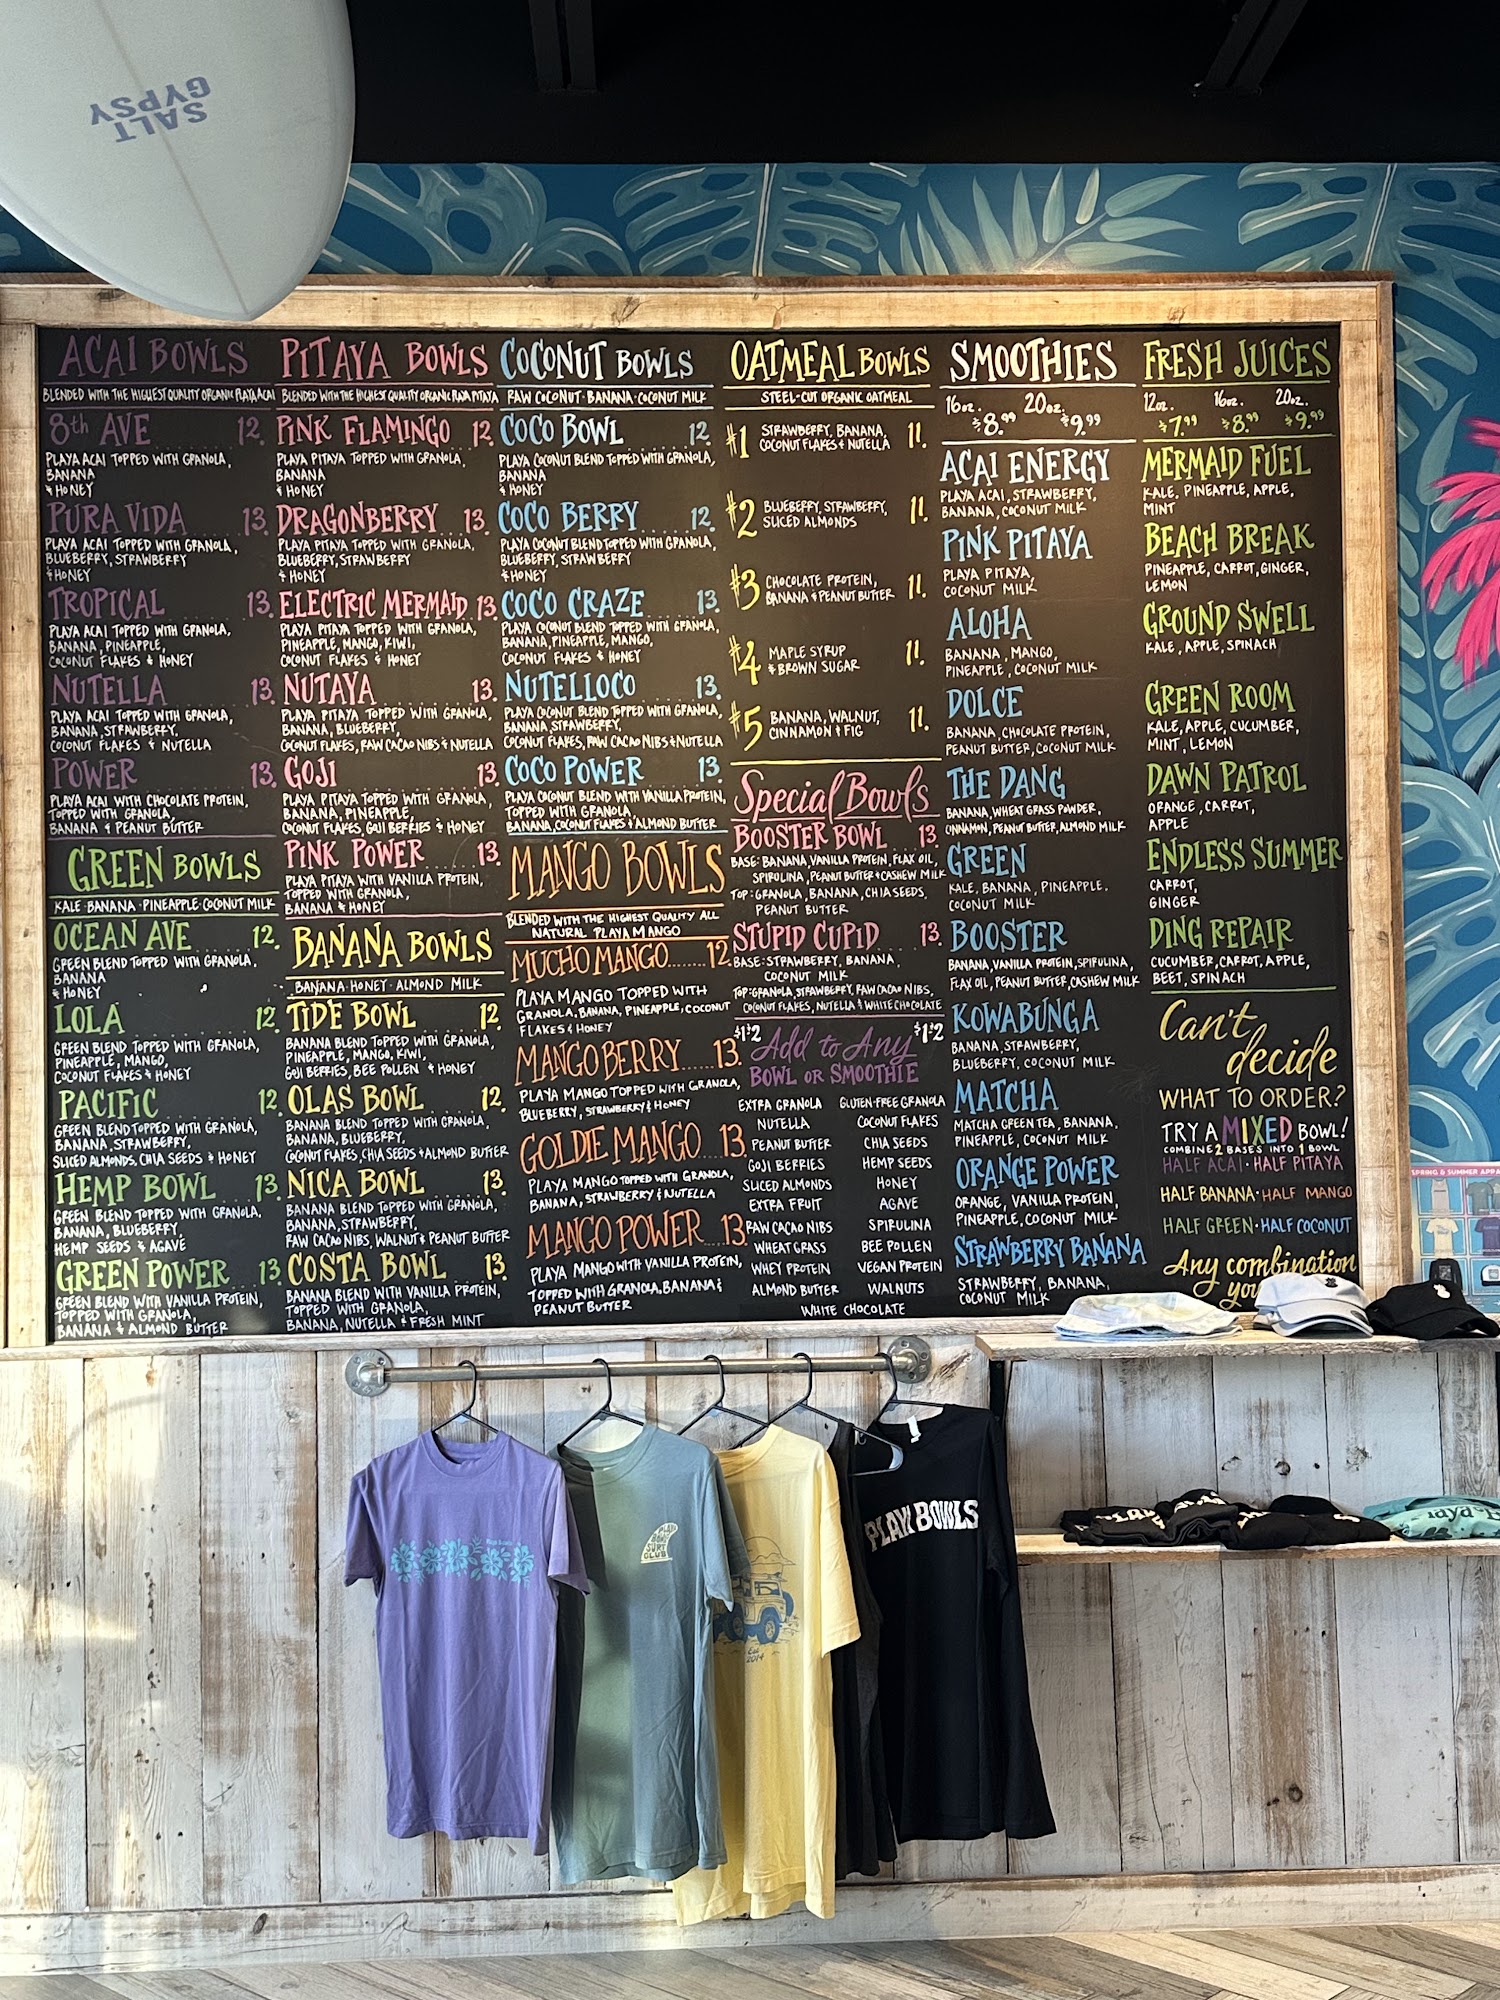 SALT
GYPSY
ACAI BOWLS
BLENDED WITH THE HIGHEST QUALITY ORGANIC PLAYA ACAI
8th AVE 12.
PLAYA ACAI TOPPED WITH GRANOLA,
BANANA
& HONEY
PURA VIDA 13.
PLAYA ACAI TOPPED WITH GRANOLA,
BLUEBERRY, STRAWBERRY
& HONEY
TROPICAL 13.
PLAYA ACAI TOPPED WITH GRANOLA,
BANANA, PINEAPPLE,
COCONUT FLAKES & HONEY
NUTELLA 13.
PLAYA ACAI TOPPED WITH GRANOLA,
BANANA, STRAWBERRY,
COCONUT FLAKES & NUTELLA
POWER 13.
PLAYA ACAI WITH CHOCOLATE PROTEIN,
TOPPED WITH GRANOLA,
BANANA & PEANUT BUTTER
GREEN BOWLS
KALE · BANANA · PINEAPPLE · COCONUT MILK
OCEAN AVE 12.
GREEN BLEND TOPPED WITH GRANOLA,
BANANA
& HONEY
LOLA 12.
GREEN BLEND TOPPED WITH GRANOLA,
PINEAPPLE, MANGO,
COCONUT FLAKES & HONEY
PACIFIC 12.
GREEN BLEND TOPPED WITH GRANOLA,
BANANA, STRAWBERRY,
SLICED ALMONDS, CHIA SEEDS & HONEY
HEMP BOWL 13.
GREEN BLEND TOPPED WITH GRANOLA,
BANANA, BLUEBERRY,
HEMP SEEDS & AGAVE
GREEN POWER 13.
GREEN BLEND WITH VANILLA PROTEIN,
TOPPED WITH GRANOLA,
BANANA & ALMOND BUTTER
PITAYA BOWLS
BLENDED WITH THE HIGHEST QUALITY ORGANIC PLAYA PITAYA
PINK FLAMINGO 12.
PLAYA PITAYA TOPPED WITH GRANOLA,
BANANA
& HONEY
DRAGONBERRY 13.
PLAYA PITAYA TOPPED WITH GRANOLA,
BLUEBERRY, STRAWBERRY
& HONEY
ELECTRIC MERMAID 13.
PLAYA PITAYA TOPPED WITH GRANOLA,
PINEAPPLE, MANGO, KIWI,
COCONUT FLAKES & HONEY
NUTAYA 13.
PLAYA PITAYA TOPPED WITH GRANOLA,
BANANA, BLUEBERRY,
COCONUT FLAKES, RAW CACAO NIBS & NUTELLA
GOJI 13.
PLAYA PITAYA TOPPED WITH GRANOLA,
BANANA, PINEAPPLE,
COCONUT FLAKES, GOJI BERRIES & HONEY
PINK POWER 13.
PLAYA PITAYA WITH VANILLA PROTEIN,
TOPPED WITH GRANOLA,
BANANA & HONEY
BANANA BOWLS
BANANA · HONEY · ALMOND MILK
TIDE BOWL 12.
BANANA BLEND TOPPED WITH GRANOLA,
PINEAPPLE, MANGO, KIWI,
GOJI BERRIES, BEE POLLEN & HONEY
OLAS BOWL 12.
BANANA BLEND TOPPED WITH GRANOLA,
BANANA, BLUEBERRY,
COCONUT FLAKES, CHIA SEEDS & ALMOND BUTTER
NICA BOWL 13.
BANANA BLEND TOPPED WITH GRANOLA,
BANANA, STRAWBERRY,
RAW CACAO NIBS, WALNUT & PEANUT BUTTER
COSTA BOWL 13.
BANANA BLEND WITH VANILLA PROTEIN,
TOPPED WITH GRANOLA,
BANANA, NUTELLA & FRESH MINT
COCONUT BOWLS
RAW COCONUT · BANANA · COCONUT MILK
COCO BOWL 12.
PLAYA COCONUT BLEND TOPPED WITH GRANOLA,
BANANA
& HONEY
COCO BERRY 12.
PLAYA COCONUT BLEND TOPPED WITH GRANOLA,
BLUEBERRY, STRAWBERRY
& HONEY
COCO CRAZE 13.
PLAYA COCONUT BLEND TOPPED WITH GRANOLA,
BANANA, PINEAPPLE, MANGO,
COCONUT FLAKES & HONEY
NUTELLOCO 13.
PLAYA COCONUT BLEND TOPPED WITH GRANOLA,
BANANA, STRAWBERRY,
COCONUT FLAKES, RAW CACAO NIBS & NUTELLA
COCO POWER 13.
PLAYA COCONUT BLEND WITH VANILLA PROTEIN,
TOPPED WITH GRANOLA,
BANANA, COCONUT FLAKES & ALMOND BUTTER
MANGO BOWLS
BLENDED WITH THE HIGHEST QUALITY ALL
NATURAL PLAYA MANGO
MUCHO MANGO........12.
PLAYA MANGO TOPPED WITH
GRANOLA, BANANA, PINEAPPLE, COCONUT
FLAKES & HONEY
MANGO BERRY......13.
PLAYA MANGO TOPPED WITH GRANOLA,
BLUEBERRY, STRAWBERRY & HONEY
GOLDIE MANGO....13.
PLAYA MANGO TOPPED WITH GRANOLA,
BANANA, STRAWBERRY & NUTELLA
MANGO POWER....13.
PLAYA MANGO WITH VANILLA PROTEIN,
TOPPED WITH GRANOLA, BANANA &
PEANUT BUTTER
OATMEAL BOWLS
STEEL-CUT ORGANIC OATMEAL
#1 STRAWBERRY, BANANA, 11.
COCONUT FLAKES & NUTELLA
#2 BLUEBERRY, STRAWBERRY, 11.
SLICED ALMONDS
#3 CHOCOLATE PROTEIN, 11.
BANANA & PEANUT BUTTER
#4 MAPLE SYRUP 11.
& BROWN SUGAR
#5 BANANA, WALNUT, 11.
CINNAMON & FIG
Special Bowls
BOOSTER BOWL 13.
BASE: BANANA, VANILLA PROTEIN, FLAX OIL,
SPIRULINA, PEANUT BUTTER & CASHEW MILK
TOP: GRANOLA, BANANA, CHIA SEEDS,
PEANUT BUTTER
STUPID CUPID 13.
BASE: STRAWBERRY, BANANA,
COCONUT MILK
TOP: GRANOLA, STRAWBERRY, RAW CACAO NIBS,
COCONUT FLAKES, NUTELLA & WHITE CHOCOLATE
$1 & 2 Add to Any $1 & 2
BOWL OR SMOOTHIE
EXTRA GRANOLA GLUTEN-FREE GRANOLA
NUTELLA COCONUT FLAKES
PEANUT BUTTER CHIA SEEDS
GOJI BERRIES HEMP SEEDS
SLICED ALMONDS HONEY
EXTRA FRUIT AGAVE
RAW CACAO NIBS SPIRULINA
WHEAT GRASS BEE POLLEN
WHEY PROTEIN VEGAN PROTEIN
ALMOND BUTTER WALNUTS
WHITE CHOCOLATE
SMOOTHIES
16oz. 20oz.
$8.99 $9.99
ACAI ENERGY
PLAYA ACAI, STRAWBERRY,
BANANA, COCONUT MILK
PINK PITAYA
PLAYA PITAYA,
COCONUT MILK
ALOHA
BANANA, MANGO,
PINEAPPLE, COCONUT MILK
DOLCE
BANANA, CHOCOLATE PROTEIN,
PEANUT BUTTER, COCONUT MILK
THE DANG
BANANA, WHEAT GRASS POWDER,
CINNAMON, PEANUT BUTTER, ALMOND MILK
GREEN
KALE, BANANA, PINEAPPLE,
COCONUT MILK
BOOSTER
BANANA, VANILLA PROTEIN, SPIRULINA,
FLAX OIL, PEANUT BUTTER, CASHEW MILK
KOWABUNGA
BANANA, STRAWBERRY,
BLUEBERRY, COCONUT MILK
MATCHA
MATCHA GREEN TEA, BANANA,
PINEAPPLE, COCONUT MILK
ORANGE POWER
ORANGE, VANILLA PROTEIN,
PINEAPPLE, COCONUT MILK
STRAWBERRY BANANA
STRAWBERRY, BANANA,
COCONUT MILK
FRESH JUICES
12oz. 16oz. 20oz.
$7.99 $8.99 $9.99
MERMAID FUEL
KALE, PINEAPPLE, APPLE,
MINT
BEACH BREAK
PINEAPPLE, CARROT, GINGER,
LEMON
GROUND SWELL
KALE, APPLE, SPINACH
GREEN ROOM
KALE, APPLE, CUCUMBER,
MINT, LEMON
DAWN PATROL
ORANGE, CARROT,
APPLE
ENDLESS SUMMER
CARROT,
GINGER
DING REPAIR
CUCUMBER, CARROT, APPLE,
BEET, SPINACH
Can't
decide
WHAT TO ORDER?
TRY A MIXED BOWL!
COMBINE 2 BASES INTO 1 BOWL
HALF ACAI · HALF PITAYA
HALF BANANA · HALF MANGO
HALF GREEN · HALF COCONUT
Any combination
SPRING & SUMMER
SURF
CLUB
Est.
2014
PLAYA BOWLS